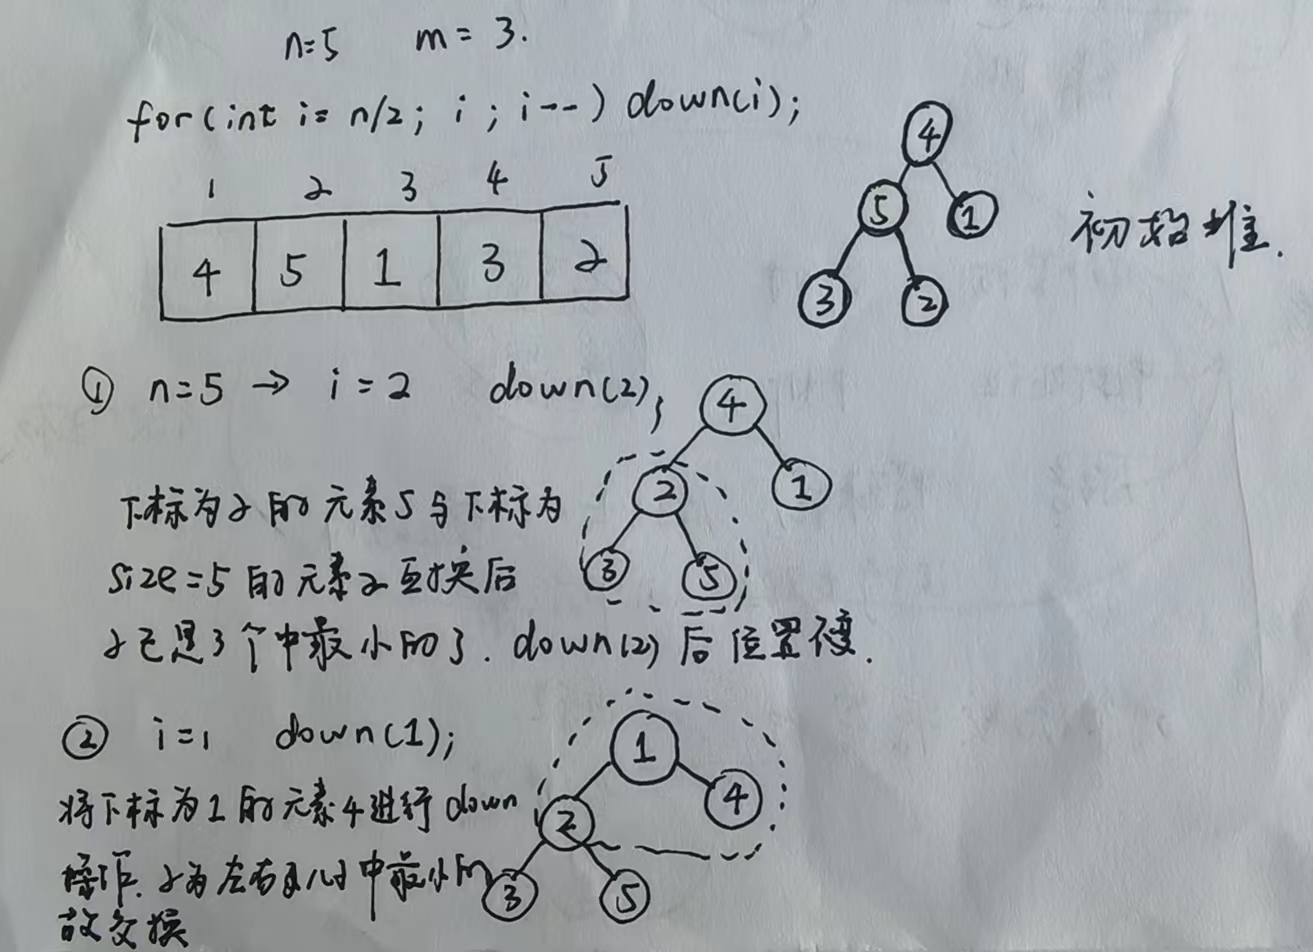 n=5 m = 3.
for(int i= n/2; i; i--) down(i);
1 2 3 4 5
4 5 1 3 2
4
5 1
3 2
初始堆.
① n=5 → i=2 down(2);
4
2 1
3 5
下标为2的元素5与下标为
size=5的元素2互换后
2已是3个中最小的了. down(2)后位置不变.
② i=1 down(1);
1
2 4
3 5
将下标为1的元素4进行down
操作. 2为左右儿中最小的
故交换